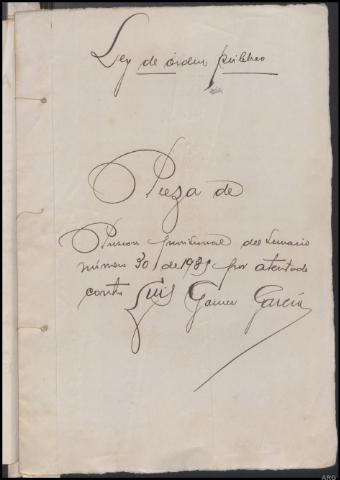 Ley de orden público
Pieza de
Prision provisional del Sumario
número 30 de 193 por atentado
contra Luis García
ARG